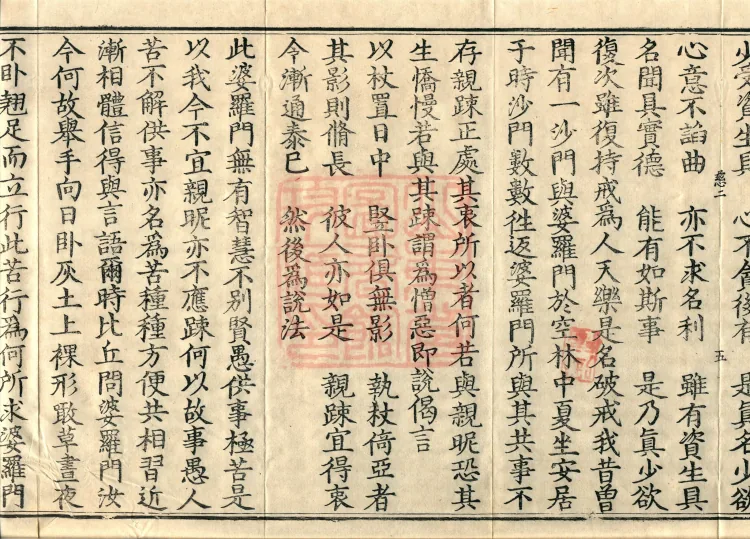 少資生具　心不貪後有　是眞名少欲
心意不諂曲　亦不求名利　雖有資生具
慈二　五
名聞具實德　能有如斯事　是乃眞少欲
復次雖復持戒爲人天樂是名破戒我昔曾
聞有一沙門與婆羅門於空林中夏坐安居
于時沙門數數徃返婆羅門所與其共事不
存親踈正處其衷所以者何若與親昵恐其
生憍慢若與其踈謂爲憎惡即說偈言
以杖置日中　竪卧俱無影　執杖倚亞者
其影則脩長　彼人亦如是　親踈宜得衷
今漸通泰已　然後爲說法
此婆羅門無有智慧不別賢愚供事極苦是
以我今不宜親昵亦不應踈何以故事愚人
苦不解供事亦名爲苦種種方便共相習近
漸相體信得與言語爾時比丘問婆羅門汝
今何故舉手向日卧灰土上裸形噉草晝夜
不卧翹足而立行此苦行爲何所求婆羅門